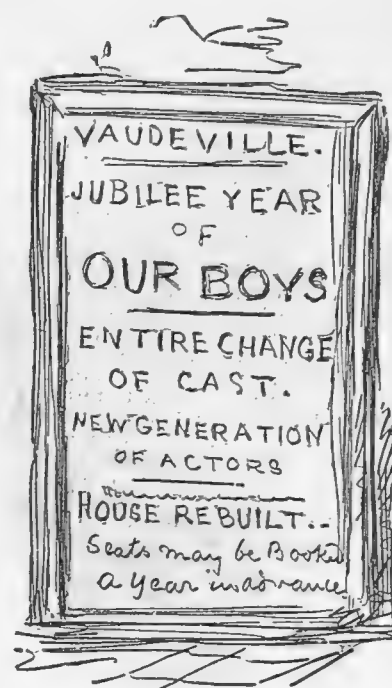 VAUDEVILLE.
JUBILEE YEAR
OF
OUR BOYS
ENTIRE CHANGE
OF CAST.
NEW GENERATION
OF ACTORS
HOUSE REBUILT..
Seats may be Booked
a year in advance